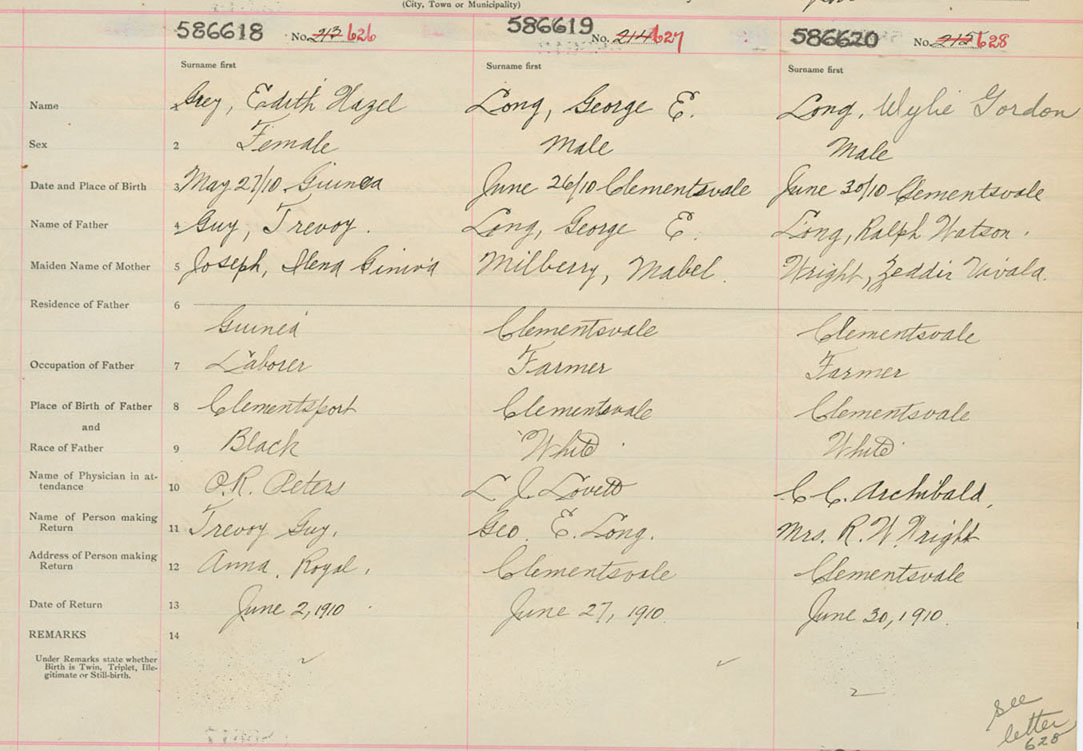 (City, Town or Municipality)
586618 No. 213 626 586619 No. 214 627 586620 No. 215 628
Surname first Surname first Surname first
Name 1 Guy, Edith Hazel Long, George E. Long, Wylie Gordon
Sex 2 Female Male Male
Date and Place of Birth 3 May 27/10 Guinea June 26/10 Clementsvale June 30/10 Clementsvale
Name of Father 4 Guy, Trevoy. Long, George E. Long, Ralph Watson.
Maiden Name of Mother 5 Joseph, Milberry, Mabel. Wright,
Residence of Father 6
Guinea Clementsvale Clementsvale
Occupation of Father 7 Laborer Farmer Farmer
Place of Birth of Father 8 Clementsport Clementsvale Clementsvale
and
Race of Father 9 Black White White
Name of Physician in at-
tendance 10 O.R. Peters L. J. Lovett C. C. Archibald,
Name of Person making
Return 11 Trevoy Guy, Geo. E. Long. Mrs. R. W. Wright
Address of Person making
Return 12 Anna. Royal, Clementsvale Clementsvale
Date of Return 13 June 2, 1910 June 27, 1910. June 30, 1910.
REMARKS 14
Under Remarks state whether
Birth is Twin, Triplet, Ille-
gitimate or Still-birth.
see
letter
628